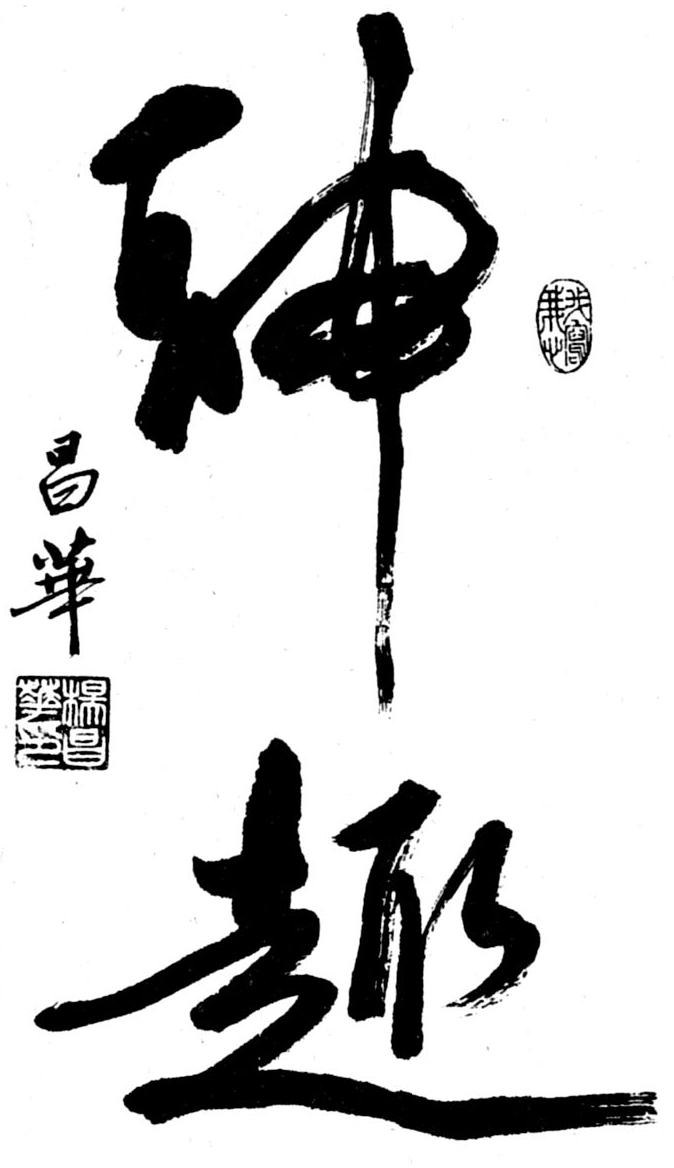 神趣
昌華
楊昌華印